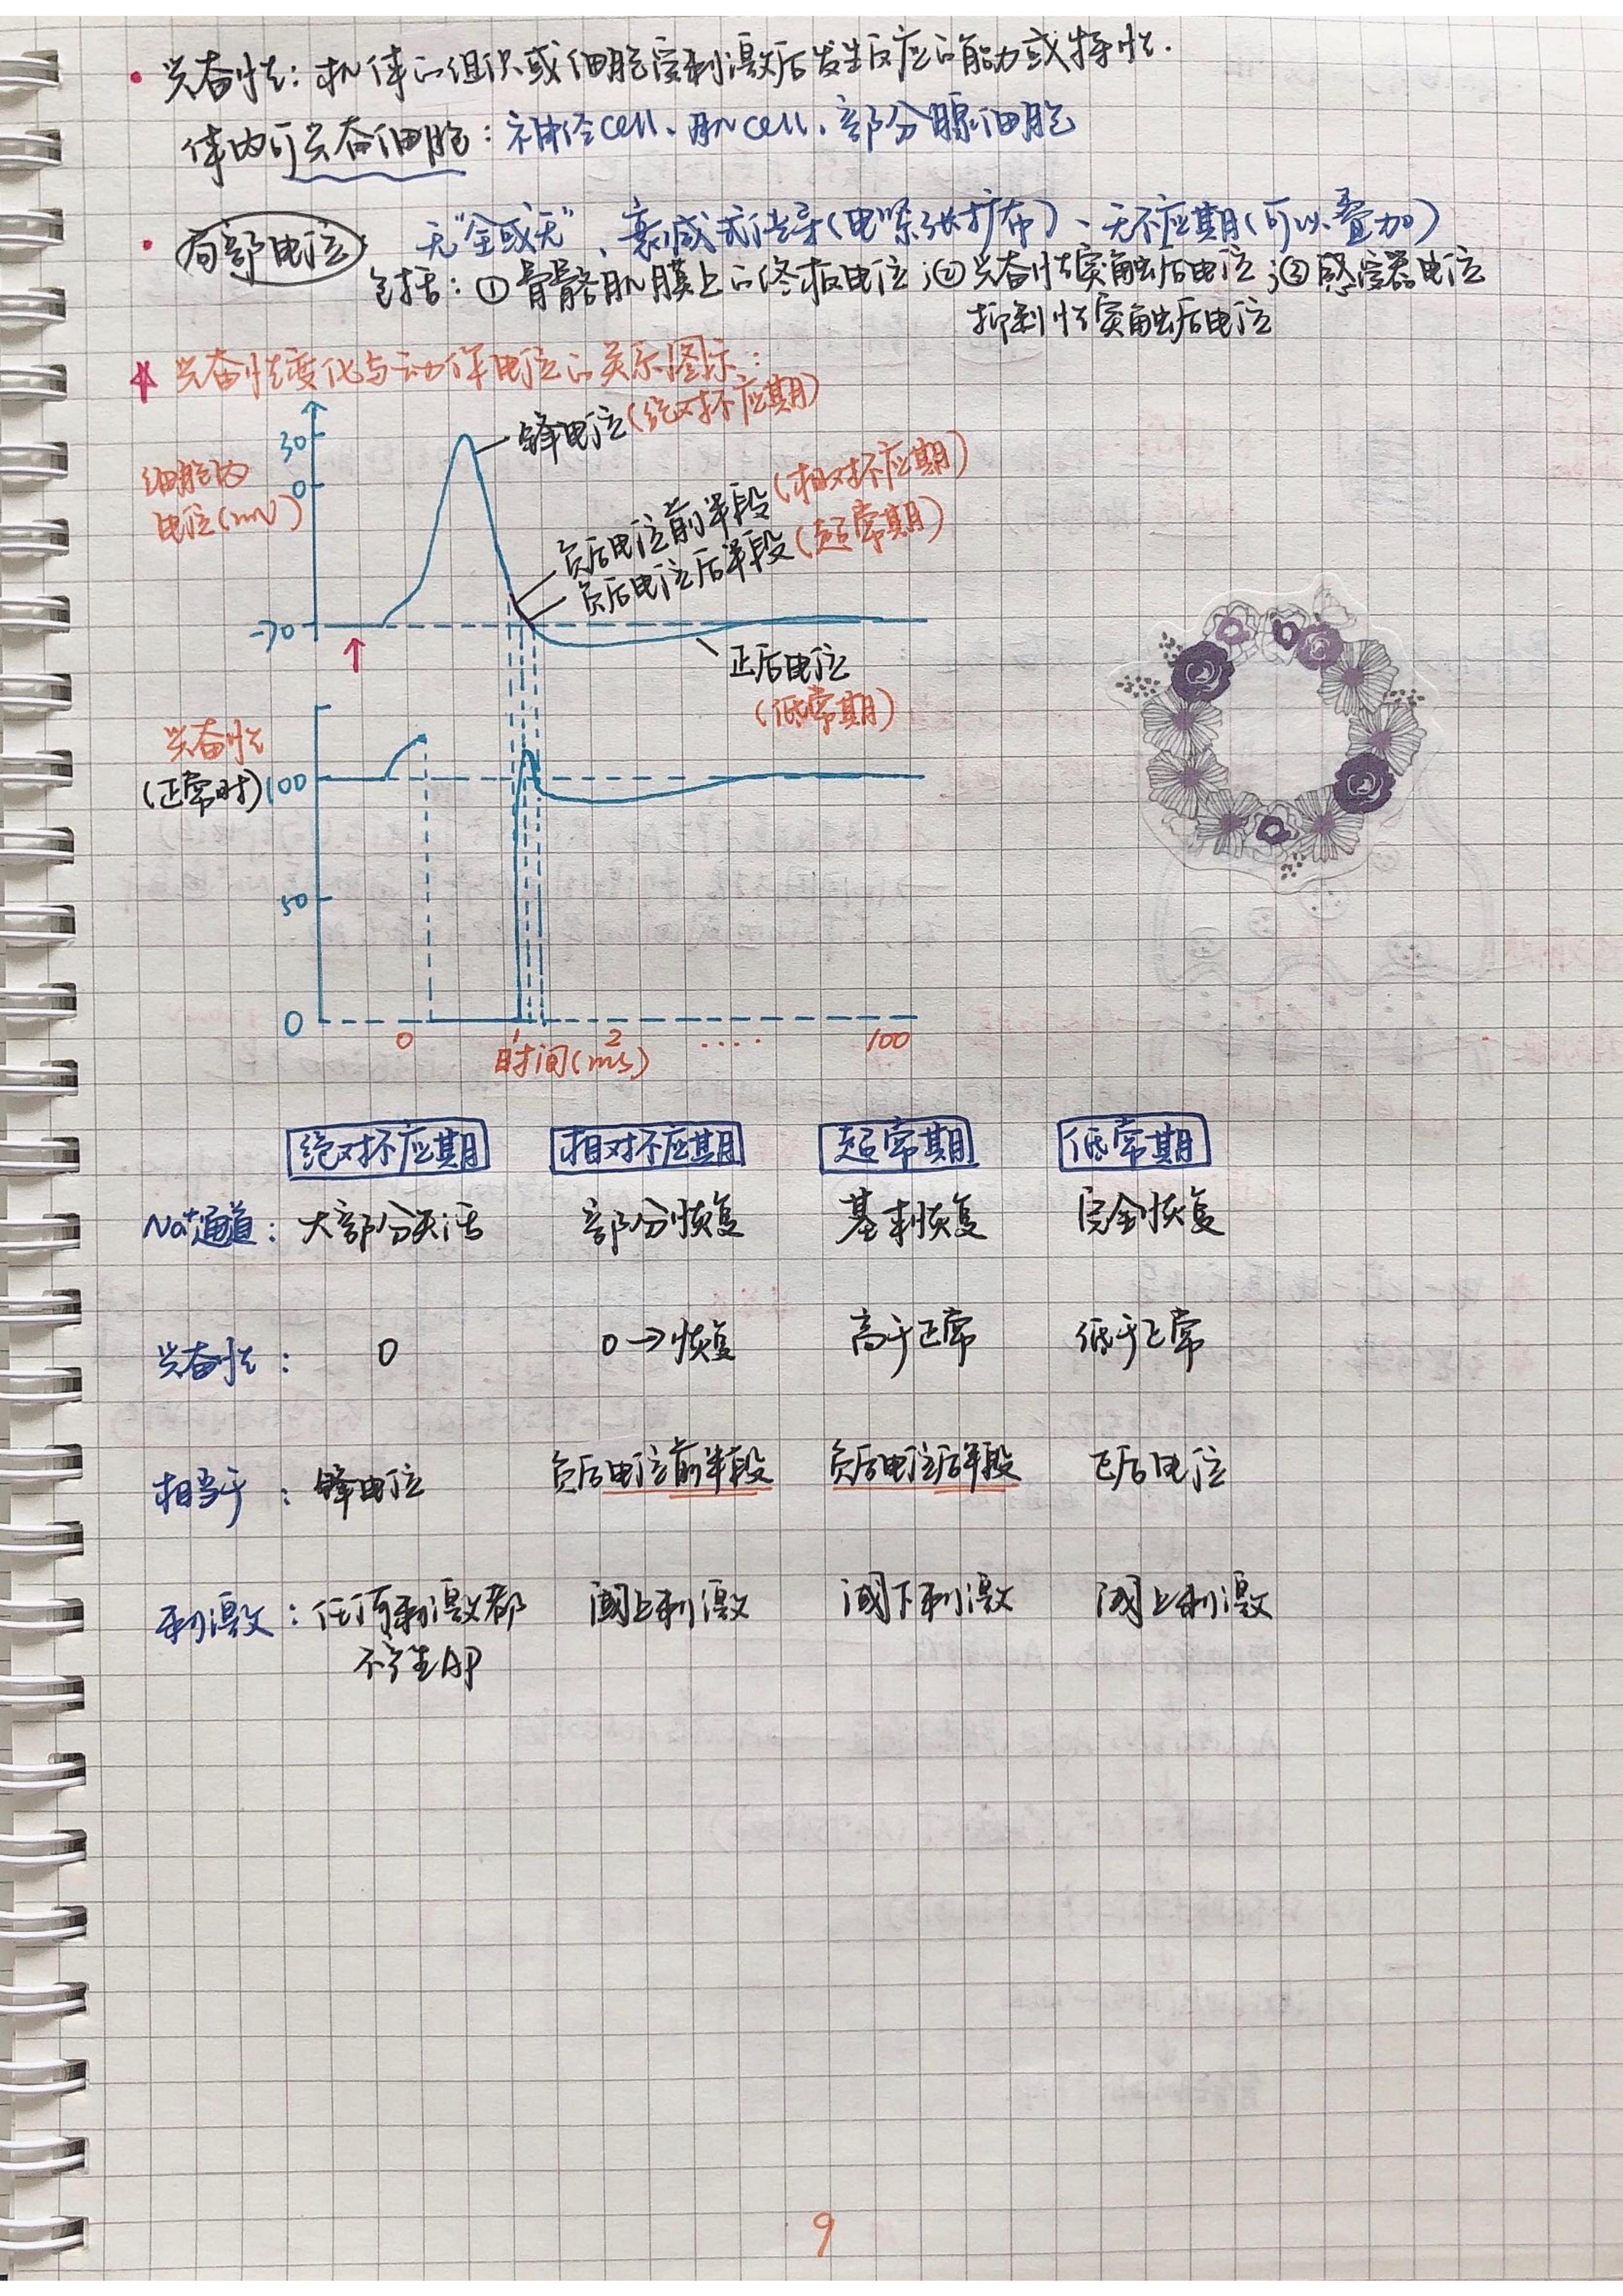 兴奋性：机体的组织或细胞受刺激后发生反应的能力或特性.
体内可兴奋细胞：神经cell、肌cell、部分腺细胞
局部电位：无“全或无”、衰减式传导(电紧张扩布)、无不应期(可以叠加)
包括：①骨骼肌膜上的终板电位；②兴奋性突触后电位；③感受器电位
抑制性突触后电位
兴奋性变化与动作电位的关系图示：
细胞内
电位(mV)
30
0
-70
锋电位(绝对不应期)
负后电位前半段(相对不应期)
负后电位后半段(超常期)
正后电位
(低常期)
兴奋性
(正常时)100
50
0
0 1 2 .... 100
时间(ms)
绝对不应期 相对不应期 超常期 低常期
Na⁺通道：大部分失活 部分恢复 基本恢复 完全恢复
兴奋性： 0 0→恢复 高于正常 低于正常
相当于：锋电位 负后电位前半段 负后电位后半段 正后电位
刺激：任何刺激都 阈上刺激 阈下刺激 阈上刺激
不产生AP
9